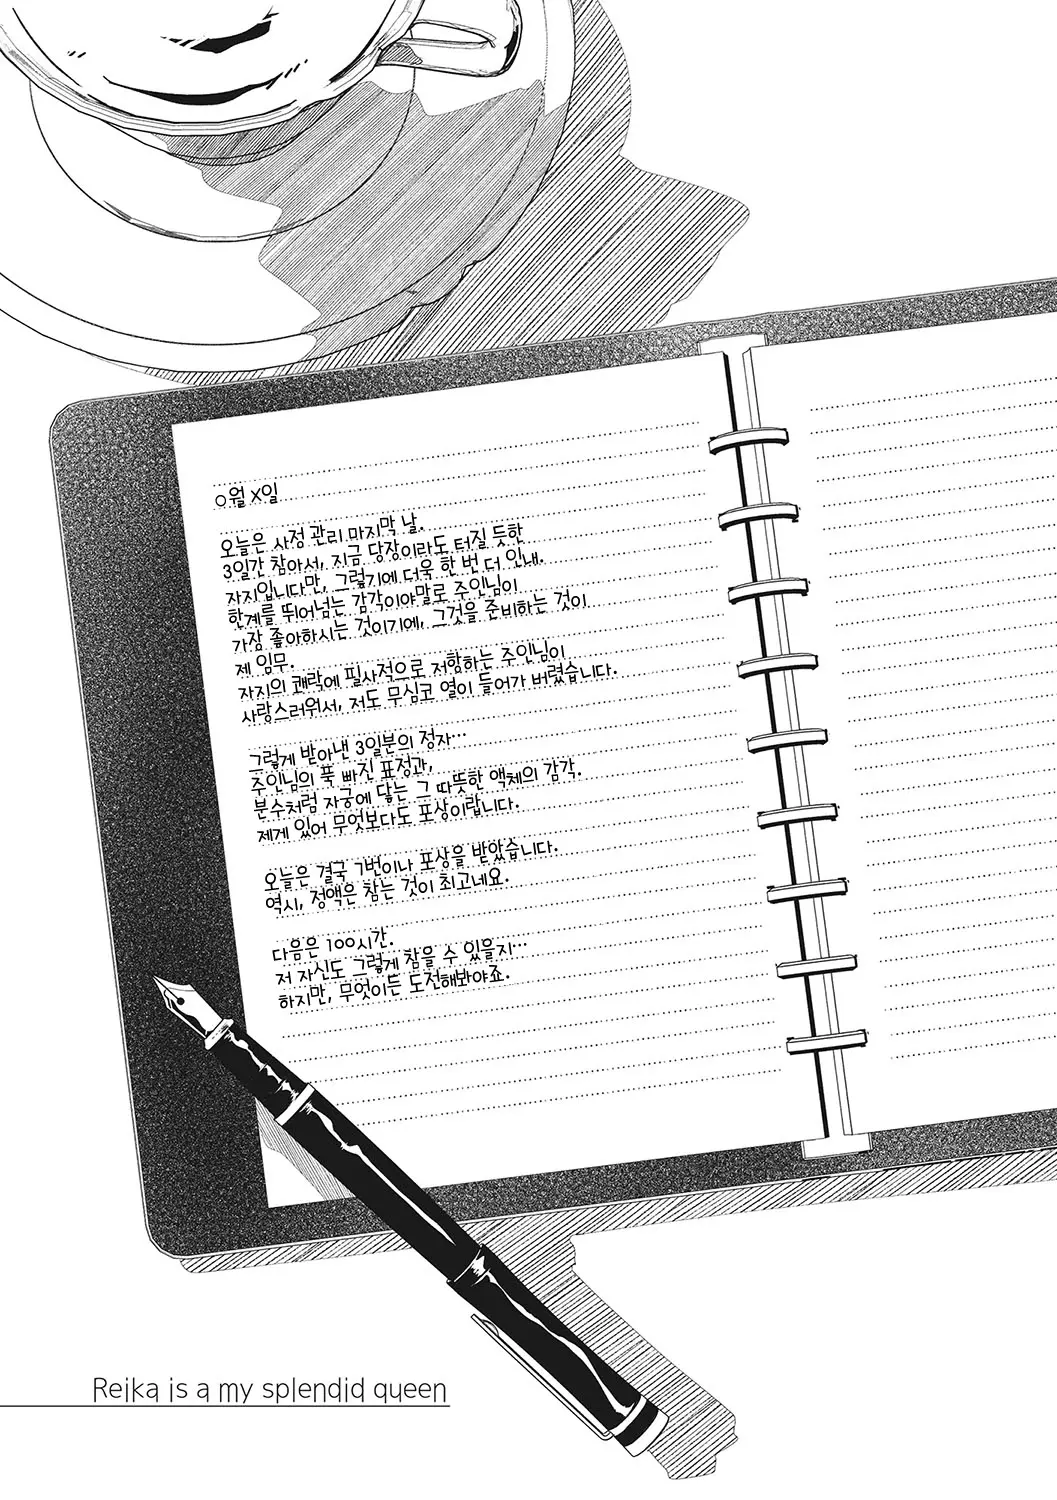 ○월 X일
오늘은 사정 관리 마지막 날.
3일간 참아서, 지금 당장이라도 터질 듯한
자지입니다만, 그렇기에 더욱 한 번 더 인내.
한계를 뛰어넘는 감각이야말로 주인님이
가장 좋아하시는 것이기에, 그것을 준비하는 것이
제 임무.
자지의 쾌락에 필사적으로 저항하는 주인님이
사랑스러워서, 저도 무심코 열이 들어가 버렸습니다.
그렇게 받아낸 3일분의 정자…
주인님의 푹 빠진 표정과,
분수처럼 자궁에 닿는 그 따뜻한 액체의 감각.
제게 있어 무엇보다도 포상이랍니다.
오늘은 결국 7번이나 포상을 받았습니다.
역시, 정액은 참는 것이 최고네요.
다음은 100시간.
저 자신도 그렇게 참을 수 있을지…
하지만, 무엇이든 도전해봐야죠.
Reika is a my splendid queen